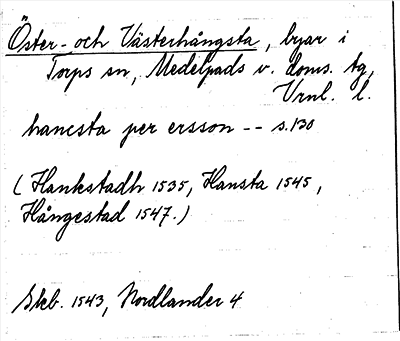 Öster- och Västerhångsta, byar i
Torps sn, Medelpads v. doms. tg,
Vrnl. l.
hancsta per ersson -- s. 130
(Hankstadh 1535, Hansta 1545,
Hångestad 1547.)
Skb. 1543, Nordlander 4